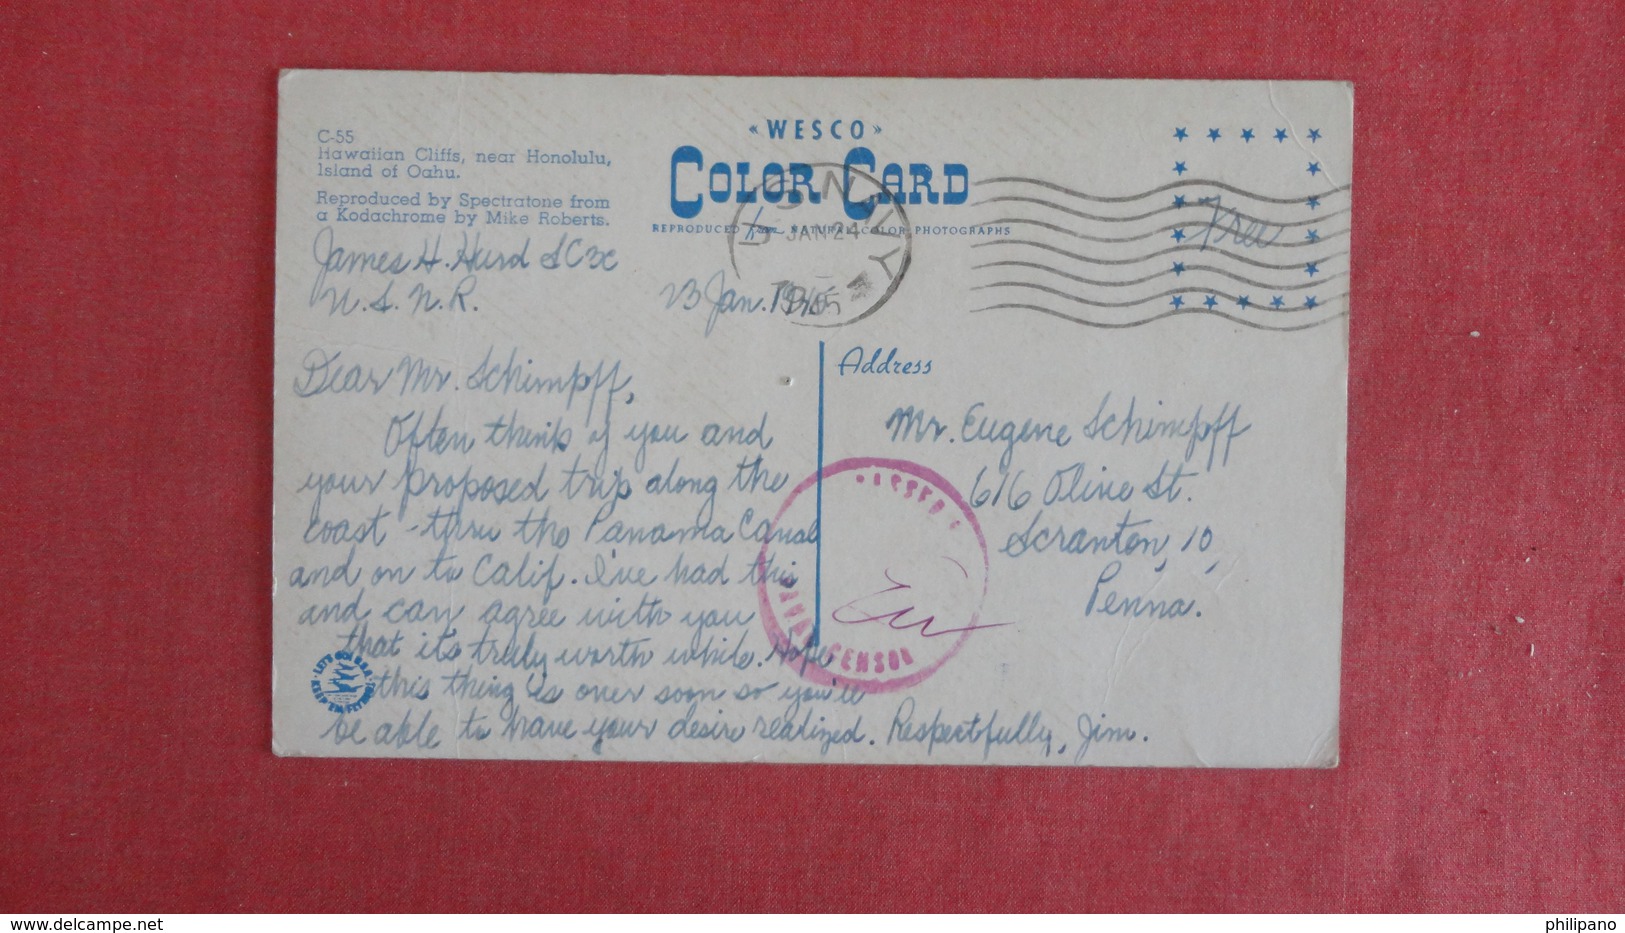 C-55
Hawaiian Cliffs, near Honolulu,
Island of Oahu.
Reproduced by Spectratone from
a Kodachrome by Mike Roberts.
«WESCO»
COLOR CARD
REPRODUCED from NATURAL COLOR PHOTOGRAPHS
U.S. NAVY
JAN 24
1945
Free
James H. Hurd SC3c
U.S.N.R.
23 Jan. 1945
Dear Mr. Schimpff,
Often think of you and
your proposed trip along the
coast - thru the Panama Canal
and on to Calif. I've had this
and can agree with you
that it's truly worth while. Hope
this thing is over soon so you'll
be able to have your desire realized. Respectfully, Jim.
Address
Mr. Eugene Schimpff
616 Olive St.
Scranton, 10,
Penna.
PASSED BY
NAVAL CENSOR
LET'S GO! U.S.A.
KEEP 'EM FLYING
www.delcampe.net
philipano